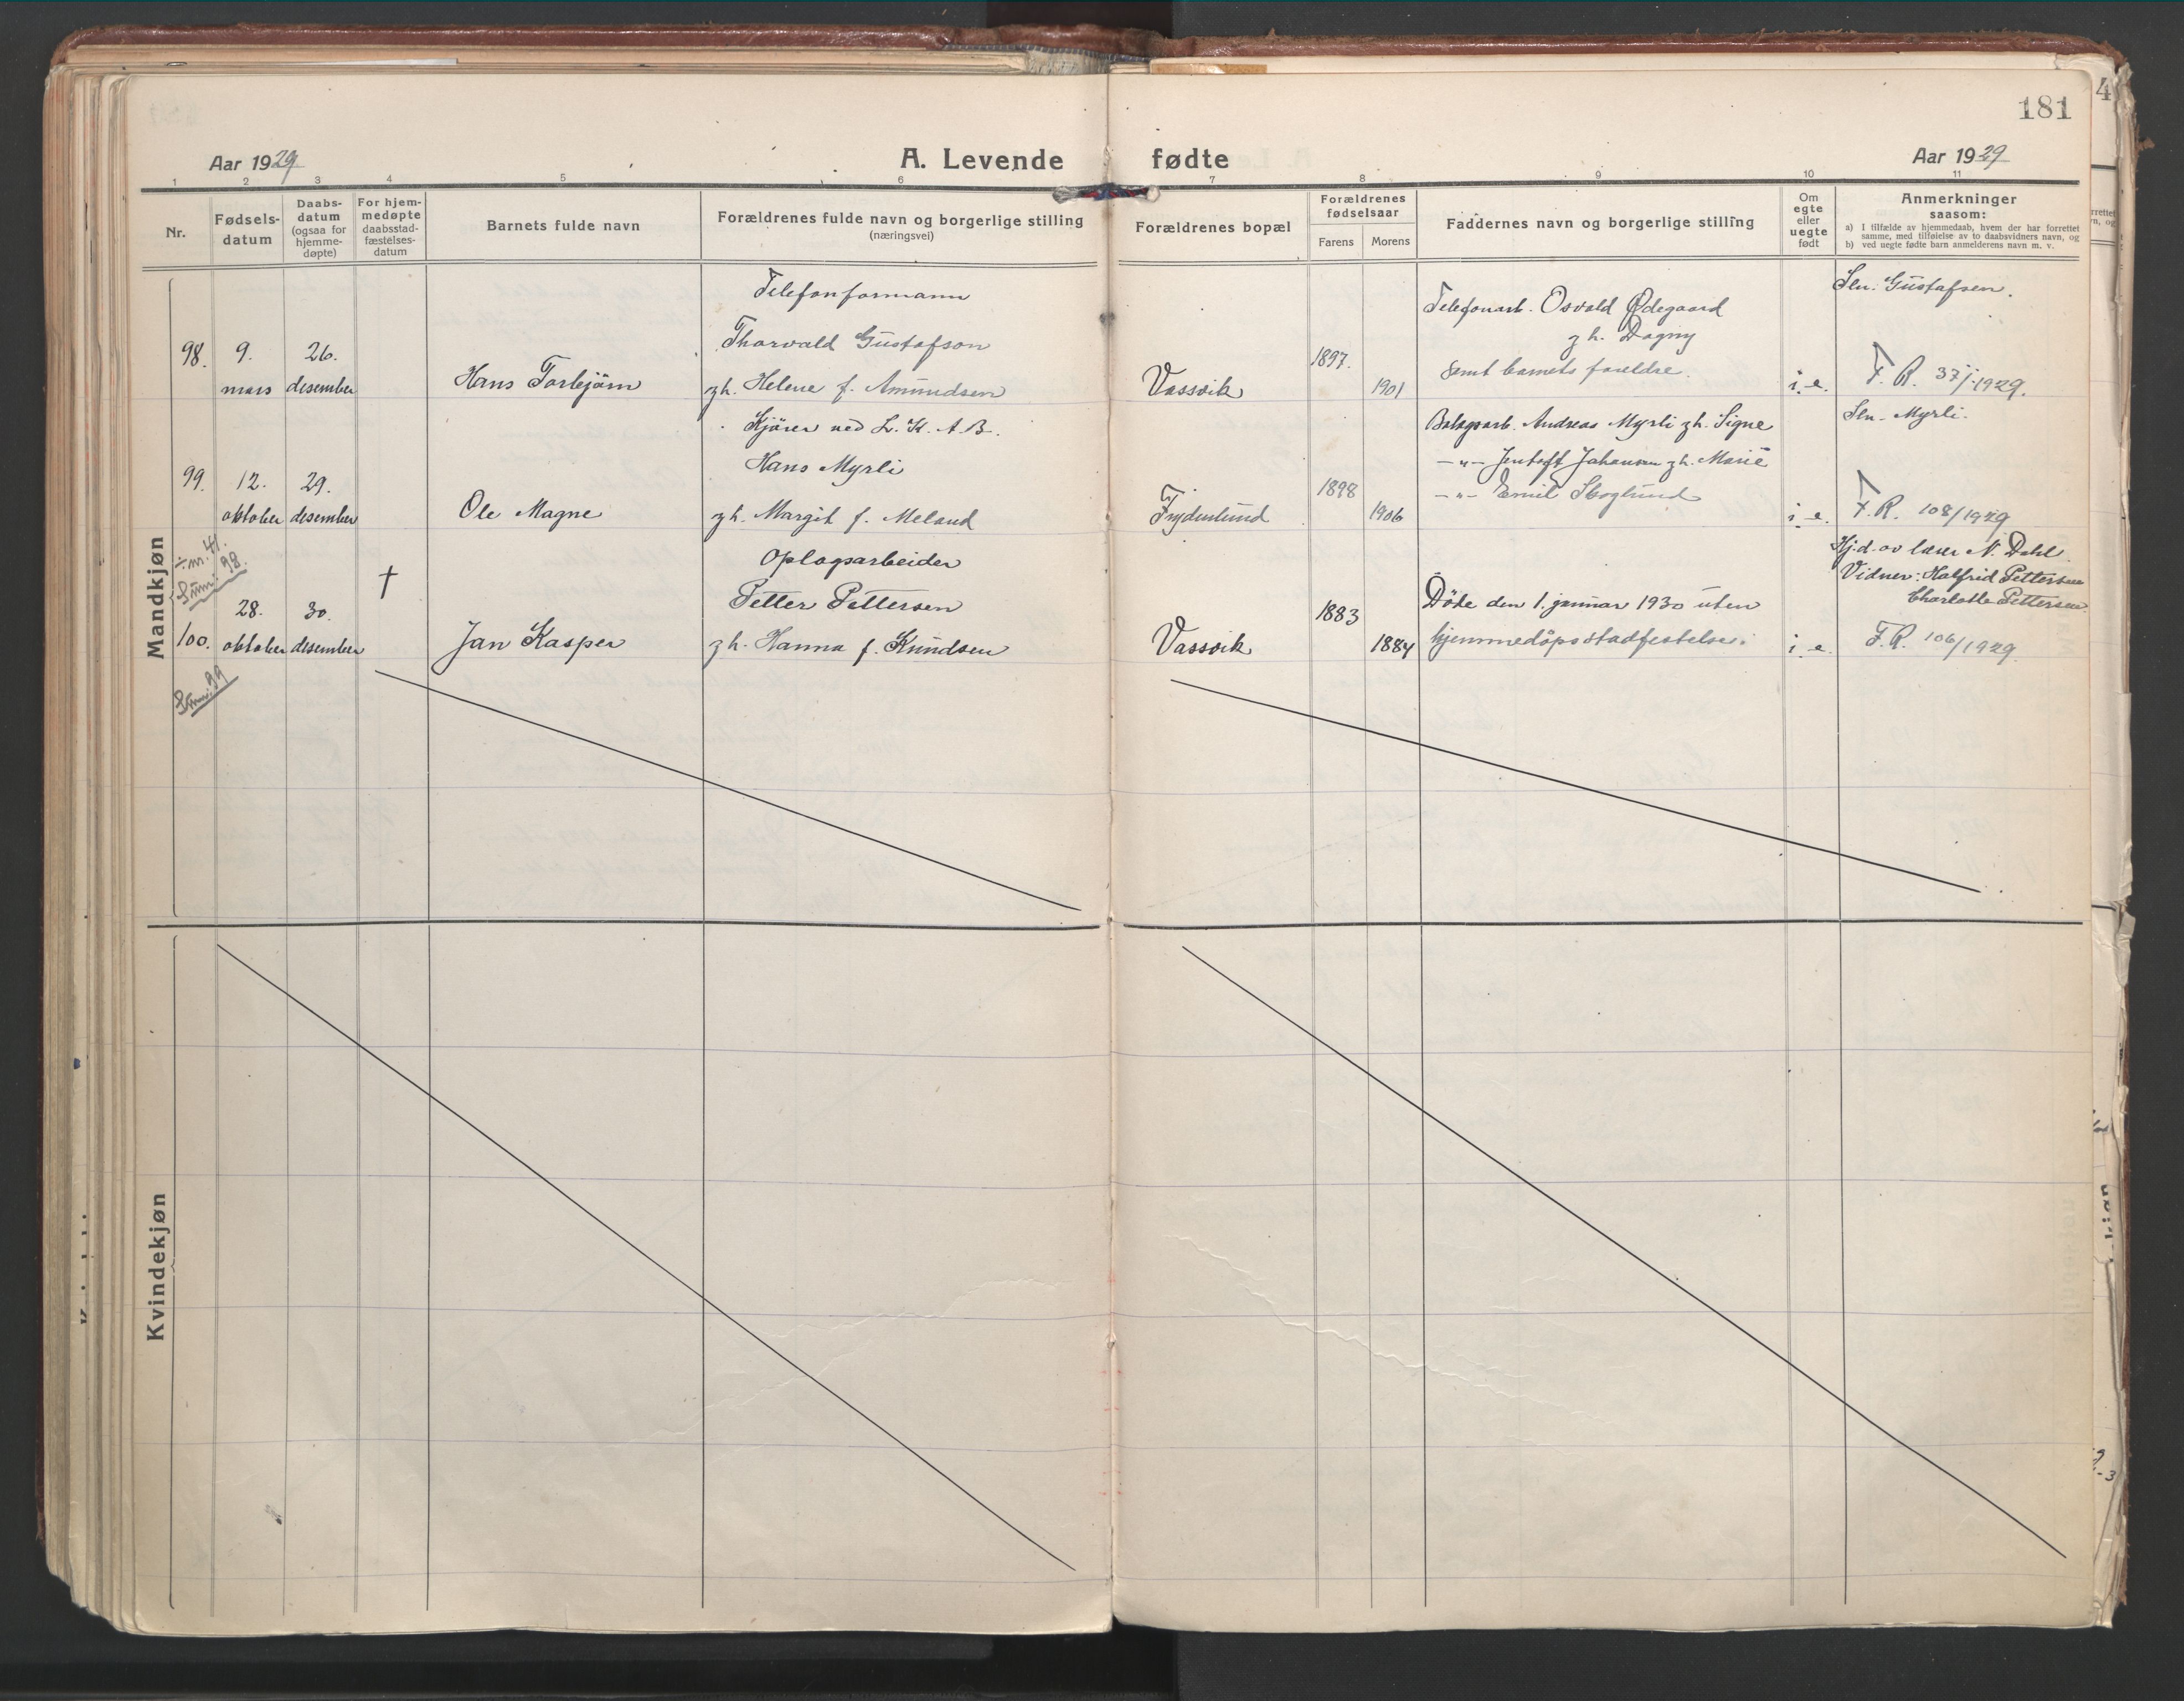 181
Aar 1929
A. Levende fødte
Aar 1929
1 2 3 4 5 6 7 8 9 10 11
Nr.
Fødselsdatum
Daabsdatum (ogsaa for hjemmedøpte)
For hjemmedøpte daabsstadfæstelsesdatum
Barnets fulde navn
Forældrenes fulde navn og borgerlige stilling
(næringsvei)
Forældrenes bopæl
Forældrenes fødselsaar
Farens Morens
Faddernes navn og borgerlige stilling
Om egte eller uegte født
Anmerkninger
saasom:
a) I tilfælde av hjemmedaab, hvem der har forrettet samme, med tilføielse av to daabsvidners navn, og
b) ved uegte fødte barn anmelderens navn m. v.
Mandkjøn
98.
9. mars
26. desember
Hans Torbjörn
Telefonformann
Thorvald Gustafson
g h. Helene f. Amundsen
Vassvik
1897.
1901
Telefonarb. Osvald Ødegaard
g h. Dagny
samt barnets foreldre.
i. e.
Sln. Gustafsen.
F. R. 37/1929.
99.
12. oktober
29. desember
Ole Magne
Kjörer ved L. K. A. B.
Hans Myrli
g h. Margit f. Meland
Frydenlund
1898
1906
Bolagsarb. Andreas Myrli g h. Signe
-"- Jentoft Johansen g h. Marie
-"- Emil Skoglund
i. e.
Sln. Myrli.
F. R. 108/1929
÷ nr. 41.
Sum: 98.
100.
28. oktober
30. desember
†
Jan Kasper
Oplagsarbeider
Petter Pettersen
g h. Hanna f. Knudsen
Vassvik
1883
1884
Döde den 1. januar 1930 uten
hjemmedöpsstadfestelse.
i. e.
Hj.d. av lærer N. Dahl
Vidner: Halfrid Pettersen
Charlotte Pettersen
F. R. 106/1929.
Sum: 99
Kvindekjøn